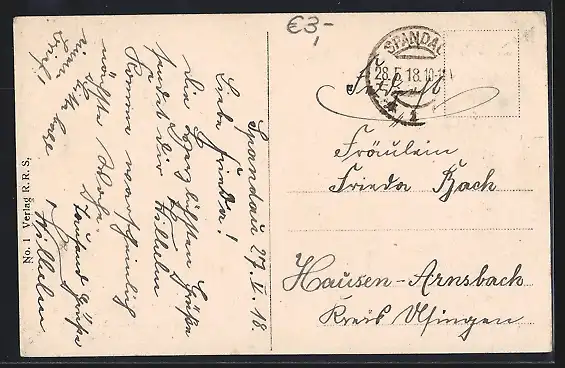 €3,-
SPANDAU
28.5.18.10-11
1
Fräulein
Frieda Bach
Hausen-Arnsbach
Kreis Usingen
Spandau 27.V.18.
Liebe Frieda!
Die herzlichsten Grüße
sendet dir Wilhelm
Komme warscheinlich
nächste Woche
Tausend Grüße
Wilhelm
No. 1 Verlag R. R. S.